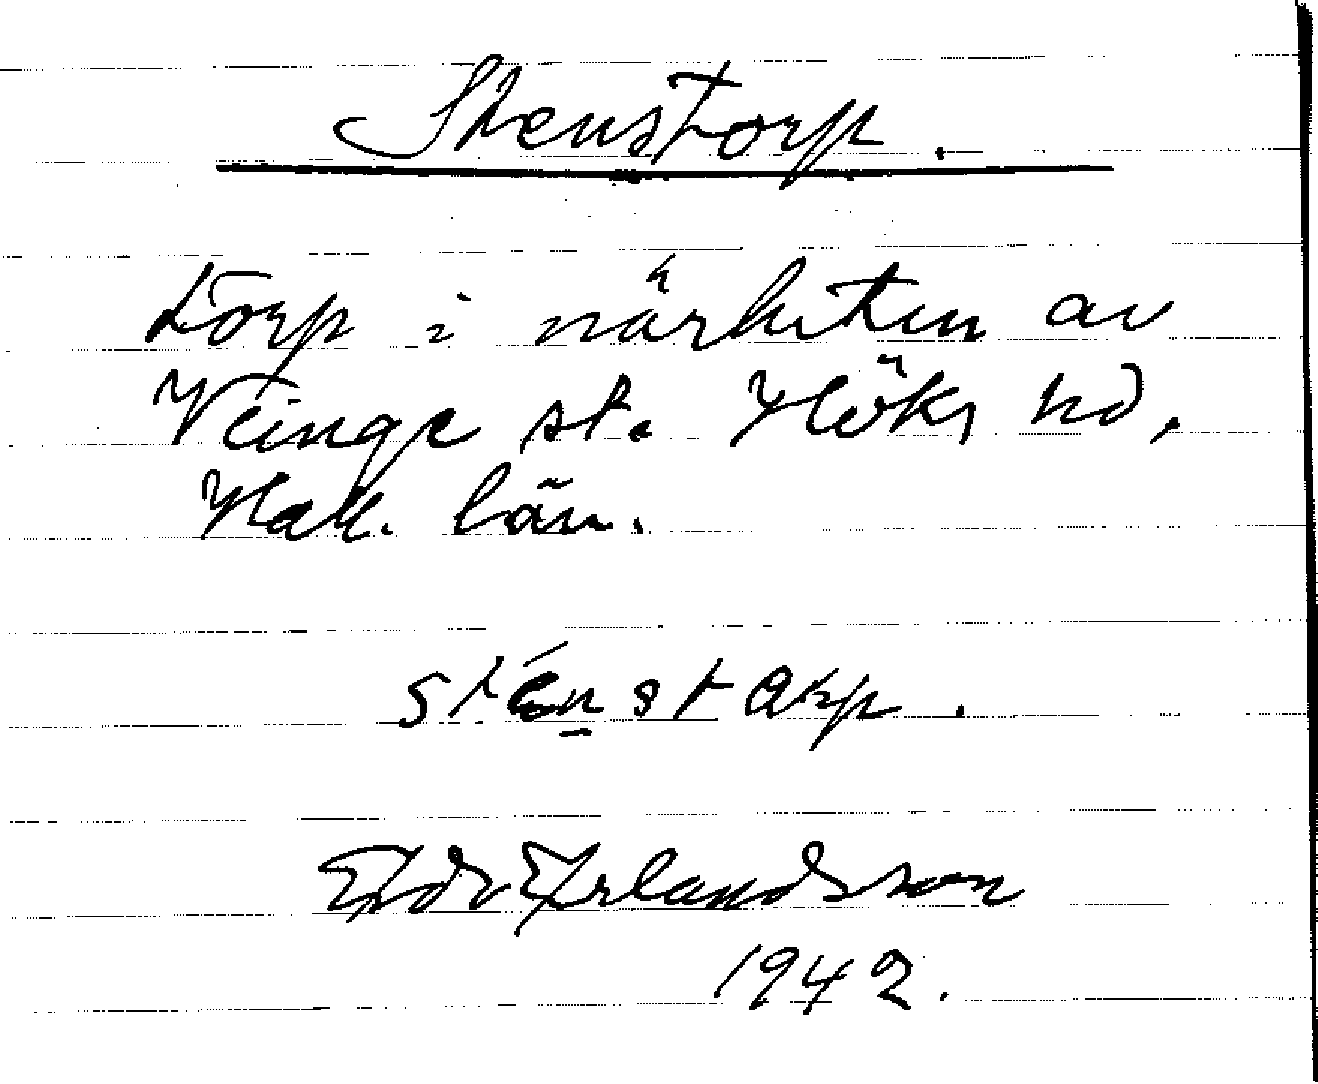 Stenstorp.
torp i närheten av
Veinge st. Höks hd,
Hall. län.
sténstarp.
Edv Erlandsson
1942.